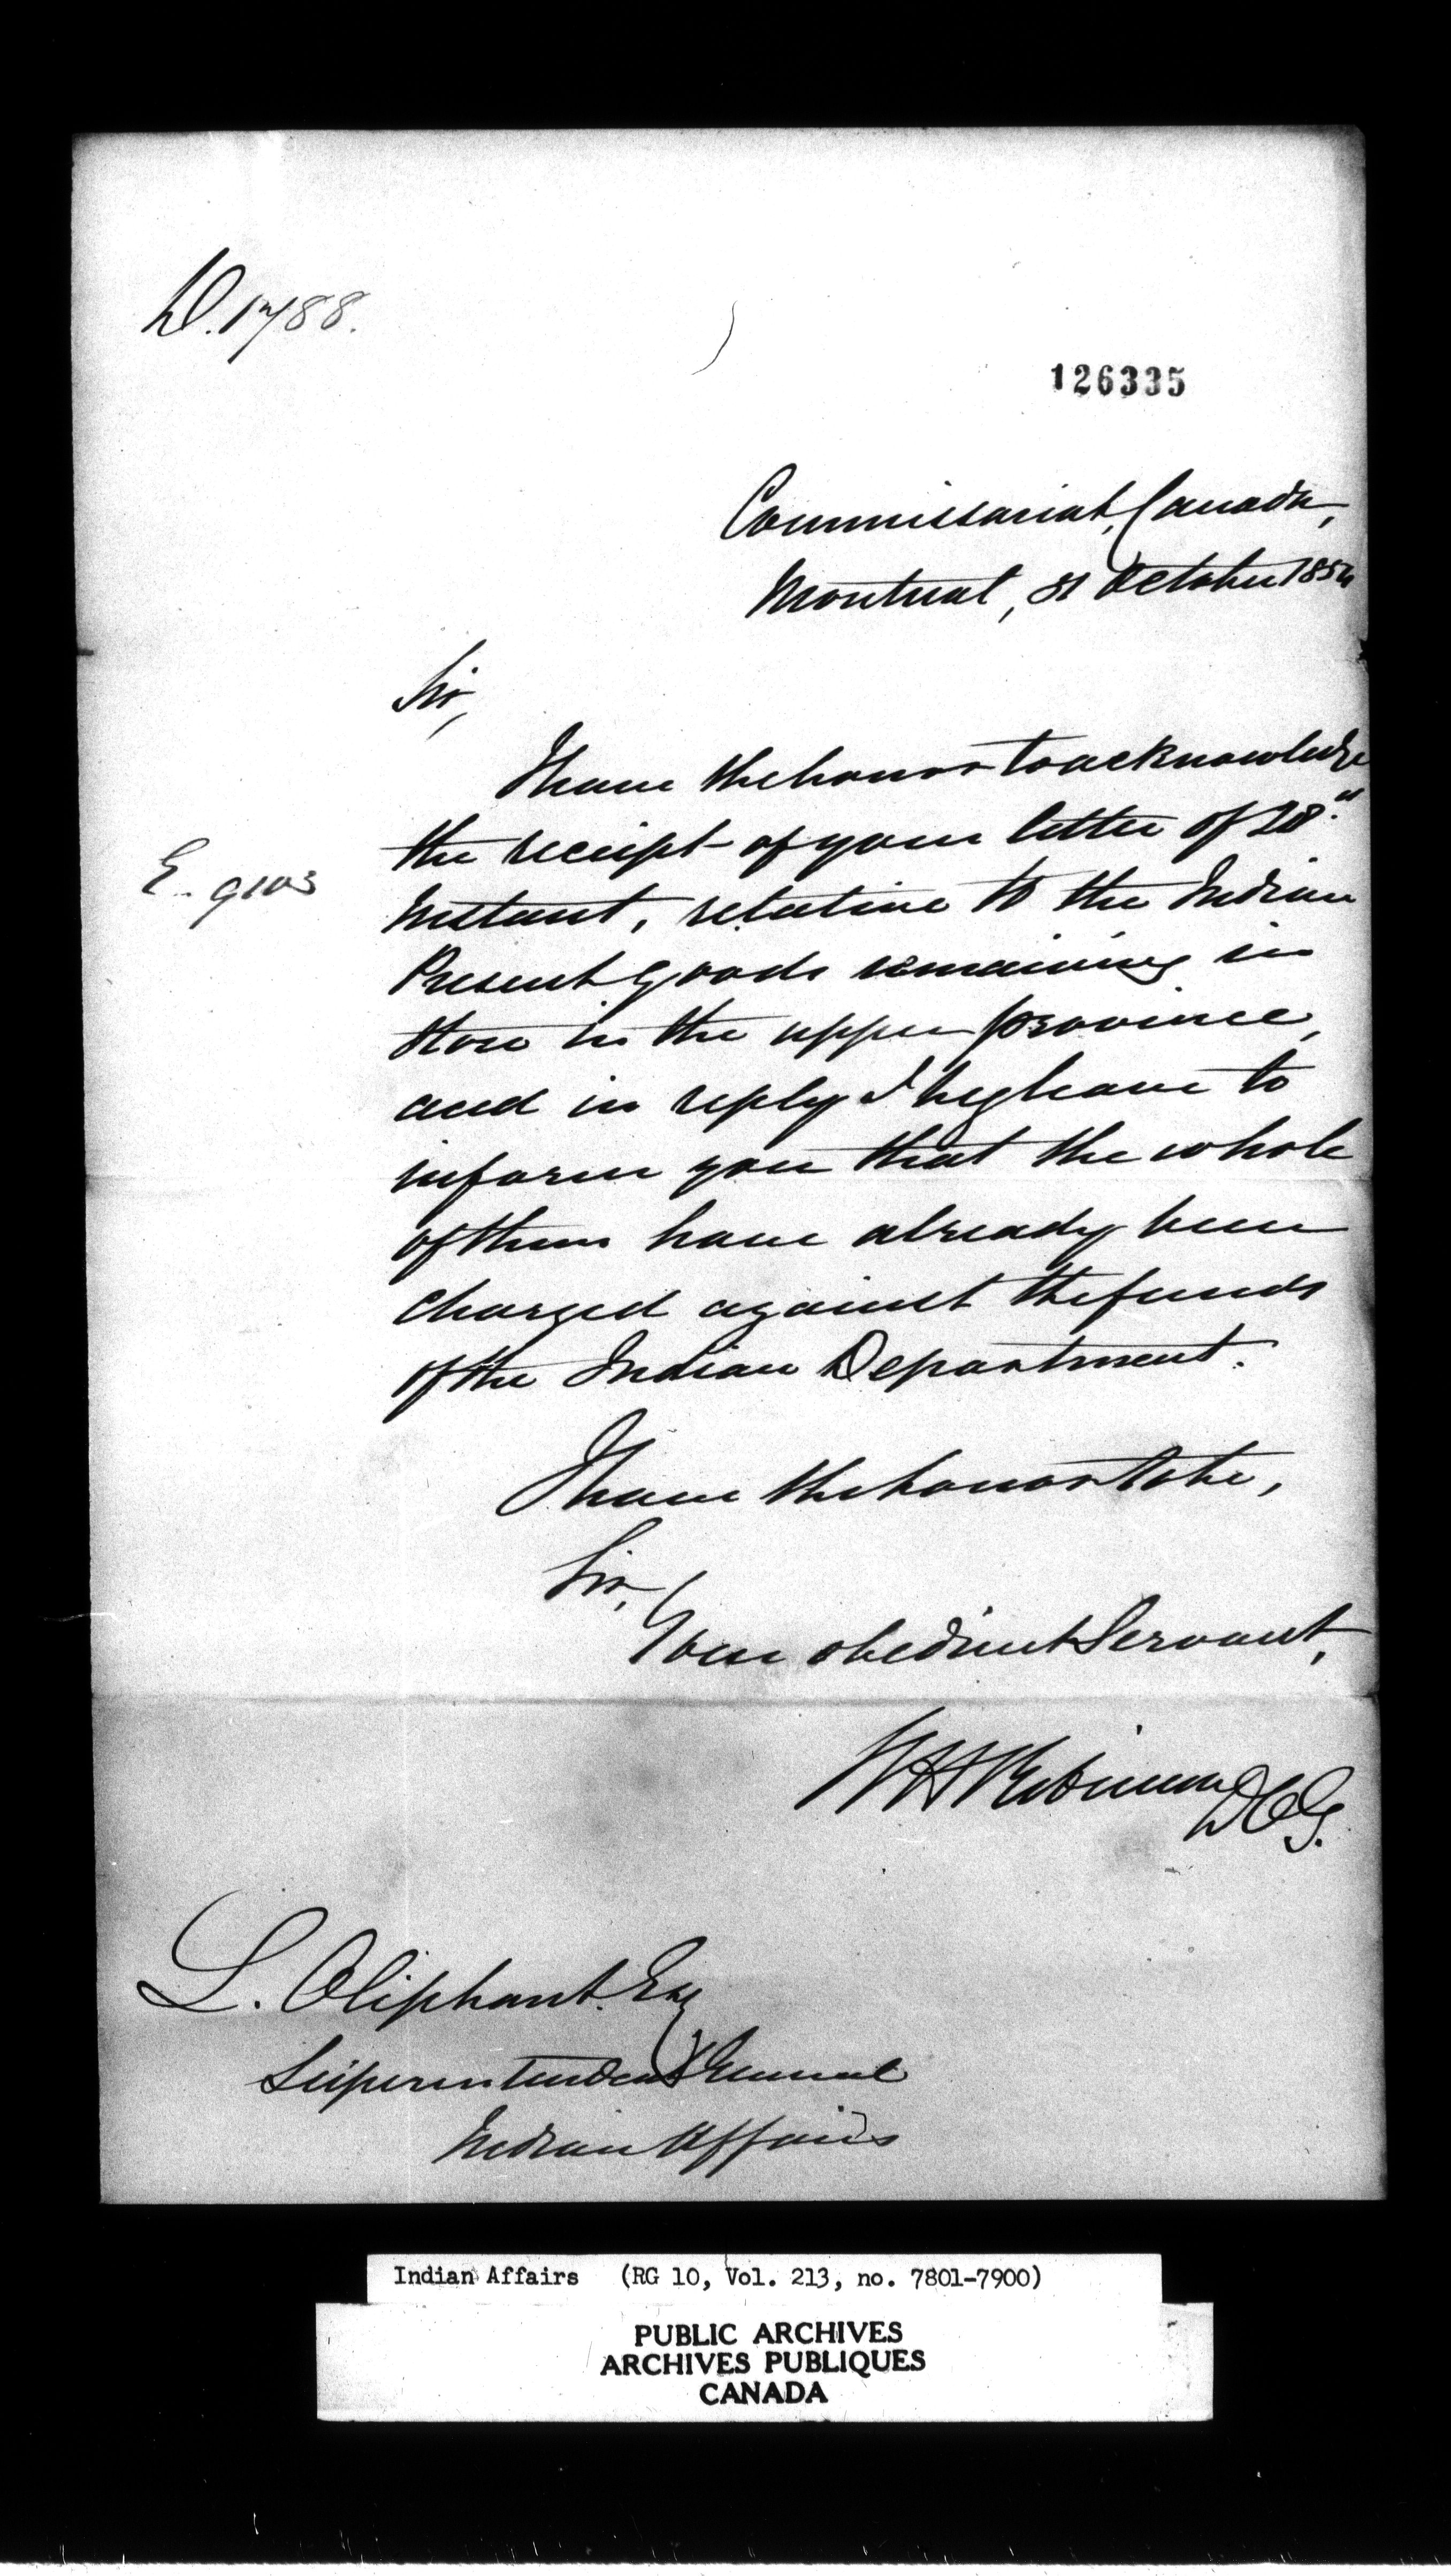 D. 1788.
126335
Commissariat, Canada,
Montreal, 31 October 1854
Sir,
I have the honor to acknowledge
the receipt of your letter of 28th
E. 9103
Instant, relative to the Indian
Present goods remaining in
store in the upper province,
and in reply I beg leave to
inform you that the whole
of them have already been
charged against the funds
of the Indian Department.
I have the honor to be,
Sir,
Your obedient Servant,
W H Robinson DCG.
L. Oliphant Esq
Superintendent General
Indian Affairs
Indian Affairs (RG 10, Vol. 213, no. 7801-7900)
PUBLIC ARCHIVES
ARCHIVES PUBLIQUES
CANADA